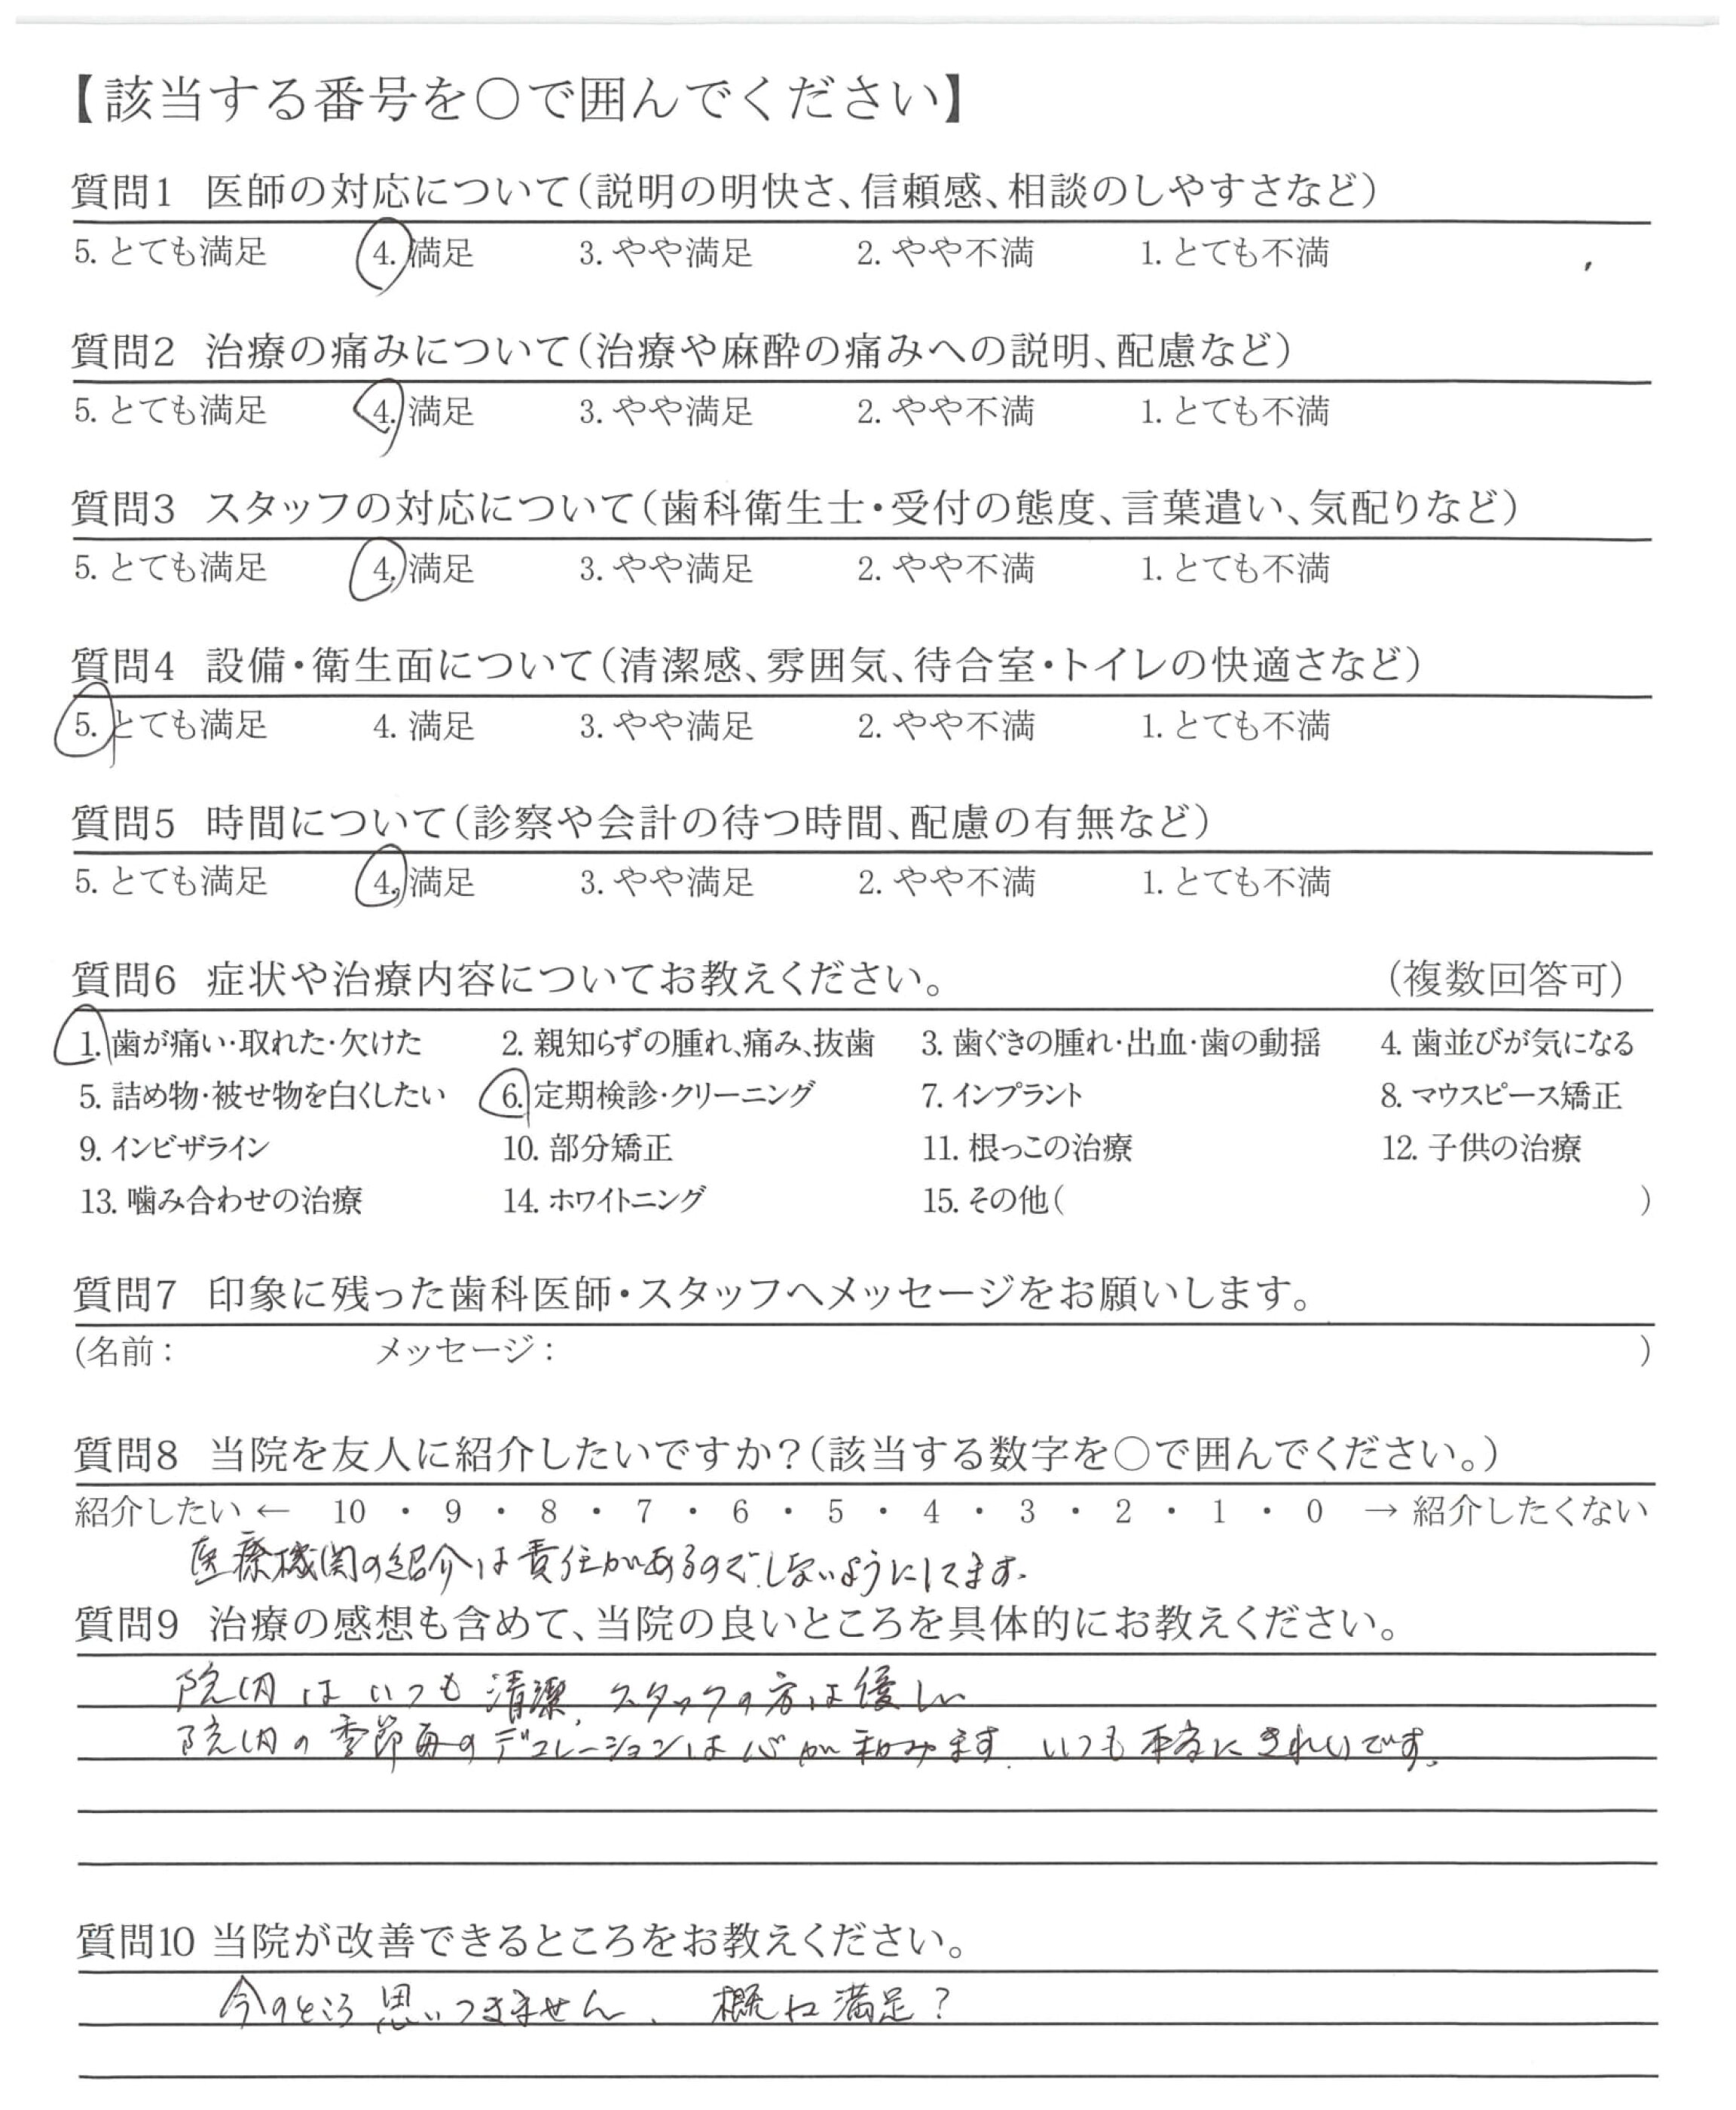 【該当する番号を〇で囲んでください】
質問1 医師の対応について(説明の明快さ、信頼感、相談のしやすさなど)
5. とても満足 4. 満足 3. やや満足 2. やや不満 1. とても不満
質問2 治療の痛みについて(治療や麻酔の痛みへの説明、配慮など)
5. とても満足 4. 満足 3. やや満足 2. やや不満 1. とても不満
質問3 スタッフの対応について(歯科衛生士・受付の態度、言葉遣い、気配りなど)
5. とても満足 4. 満足 3. やや満足 2. やや不満 1. とても不満
質問4 設備・衛生面について(清潔感、雰囲気、待合室・トイレの快適さなど)
5. とても満足 4. 満足 3. やや満足 2. やや不満 1. とても不満
質問5 時間について(診察や会計の待つ時間、配慮の有無など)
5. とても満足 4. 満足 3. やや満足 2. やや不満 1. とても不満
質問6 症状や治療内容についてお教えください。 (複数回答可)
1. 歯が痛い・取れた・欠けた 2. 親知らずの腫れ、痛み、抜歯 3. 歯ぐきの腫れ・出血・歯の動揺 4. 歯並びが気になる
5. 詰め物・被せ物を白くしたい 6. 定期検診・クリーニング 7. インプラント 8. マウスピース矯正
9. インビザライン 10. 部分矯正 11. 根っこの治療 12. 子供の治療
13. 噛み合わせの治療 14. ホワイトニング 15. その他( )
質問7 印象に残った歯科医師・スタッフへメッセージをお願いします。
(名前: メッセージ: )
質問8 当院を友人に紹介したいですか?(該当する数字を〇で囲んでください。)
紹介したい ← 10 ・ 9 ・ 8 ・ 7 ・ 6 ・ 5 ・ 4 ・ 3 ・ 2 ・ 1 ・ 0 → 紹介したくない
医療機関の紹介は責任があるので、しないようにしてます。
質問9 治療の感想も含めて、当院の良いところを具体的にお教えください。
院内はいつも清潔、スタッフの方は優しい
院内の季節毎のデコレーションは心が和みます。いつも本当にきれいです。
質問10 当院が改善できるところをお教えください。
今のところ思いつきません、概ね満足?